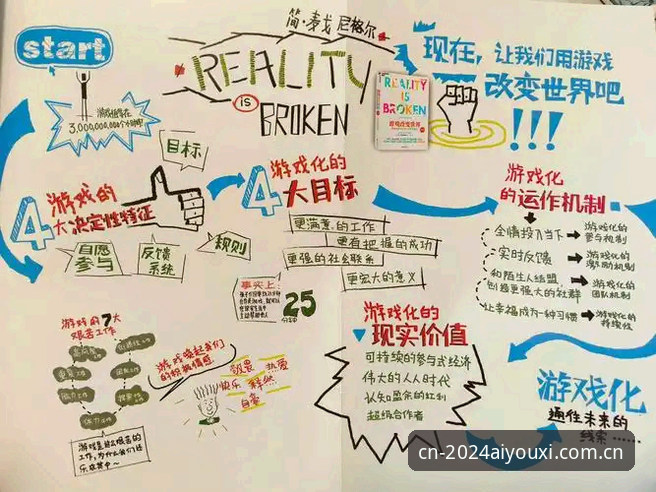 start
简·麦戈尼格尔
REALITY
IS
BROKEN
REALITY
IS
BROKEN
现在，让我们用游戏
改变世界吧
!!!
3,000,000,000个小时
目标
自愿
参与
反馈
系统
规则
4
游戏的
大决定性特征
4
游戏化的
大目标
更满意的工作
更有把握的成功
更强的社会联系
更宏大的意义
事实上：
25
分钟
游戏化
的运作机制
全情投入当下
游戏化的
参与机制
实时反馈
游戏化的
激励机制
和陌生人结盟，
创造更强大的社群
游戏化的
团队机制
让幸福成为一种习惯
游戏化的
持续性
游戏的7大
艰苦工作
游戏是
工作，为什么我们还
乐在其中～
游戏唤起我们
的积极情感
敬畏
热爱
快乐
释然
自豪
游戏化的
现实价值
可持续的参与式经济
伟大的人人时代
认知盈余的红利
超级合作者
游戏化
通往未来的
线索……
cn-2024aiyouxi.com.cn